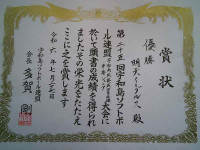 賞状
優勝
明天イーグルス殿
第二十五回宇和島ソフトボ
ール連盟
大会に
於いて頭書の成績を得られ
ましたその栄光をたたえ
ここに之を賞します
令和六年七月二十八日
宇和島ソフトボール連盟
会長 多賀剛